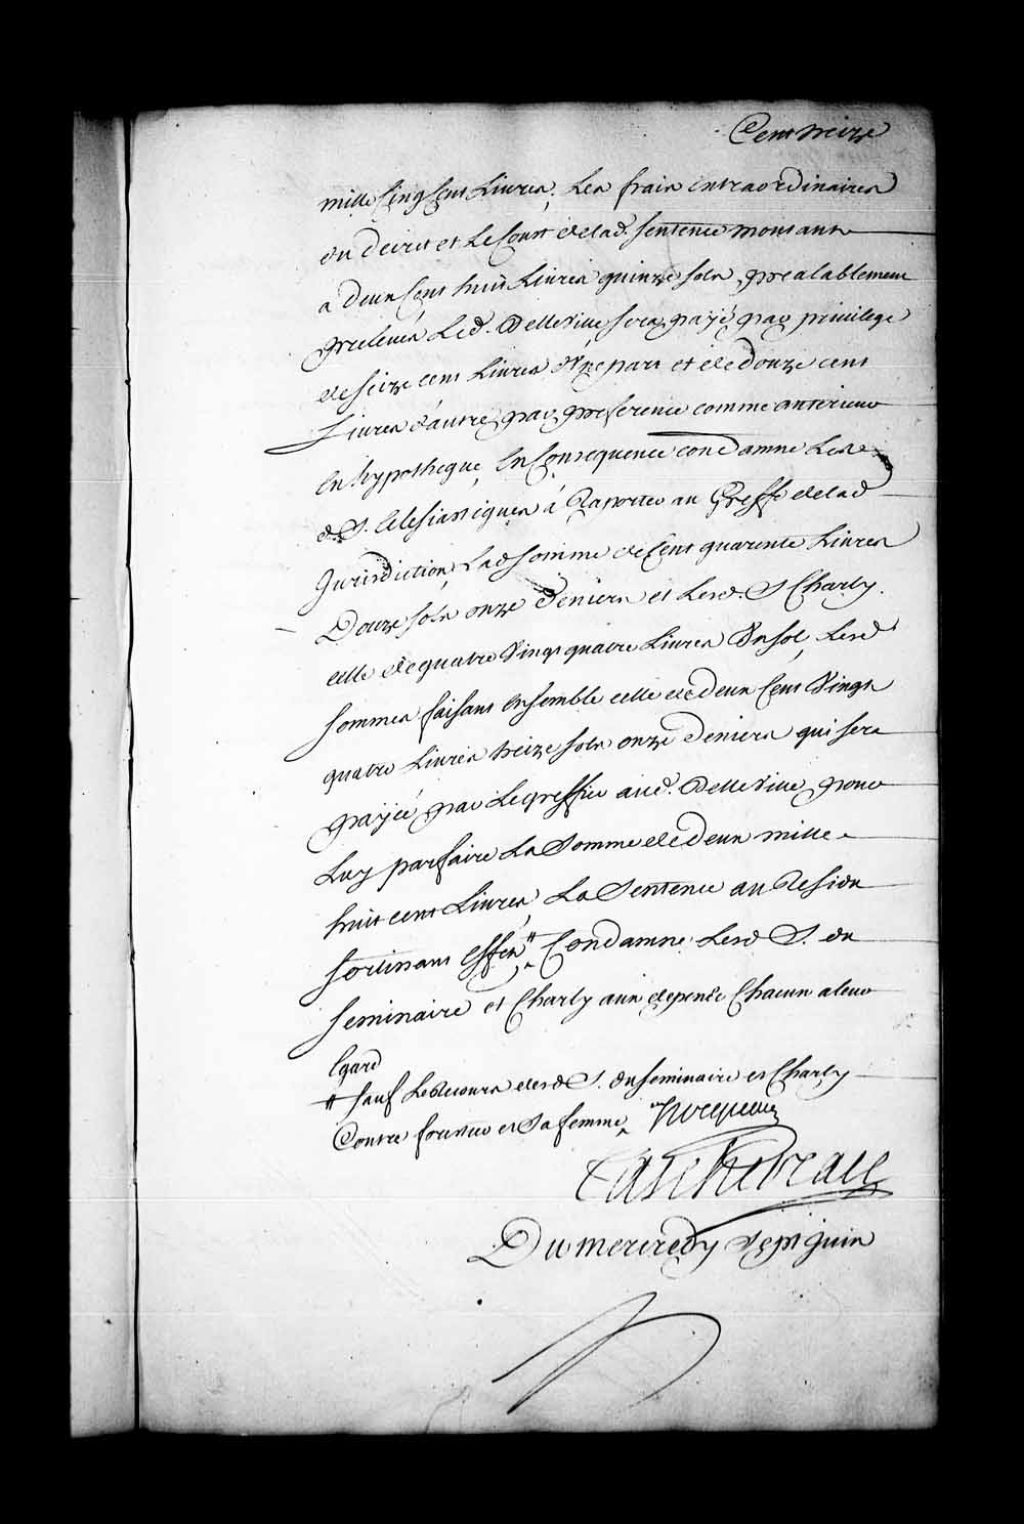 Cent treize
mille Cinq Cent Livres, Les frais extraordinaires
du decret et Le Coust de lad. Sentence montant
a deux Cent huit Livres quinze sols, prealablement
prelevés Led. Delleville sera payé par privilege
de seize cent Livres d'une part et de douze cent
Livres d'autre par preference comme anterieur
En hypotheque, En Consequence condamne Lesd.
S. Eclesiastiques á Raporter au Greffe de lad
Jurisdiction, Lad somme de Cent quarente Livres
Douze sols onze deniers et Lesd. S Charly
celle de quatre Vingt quatre Livres Un sol, Lesd
sommes faisant Ensemble celle de deux Cent Vingt
quatre Livres treize sols onze deniers qui sera
payée par Le greffier aud. Delleville pour
Luy parfaire La Somme de deux mille
huit cent Livres, La Sentence au Residu
sortissant Effet, " Condamne Lesd S. du
Seminaire et Charly aux depens Chacun a leur
Egard
" sauf Le Recours desd S. du seminaire et Charly
Contre et Sa femme, Hocquart
Du mercredy Sept Juin